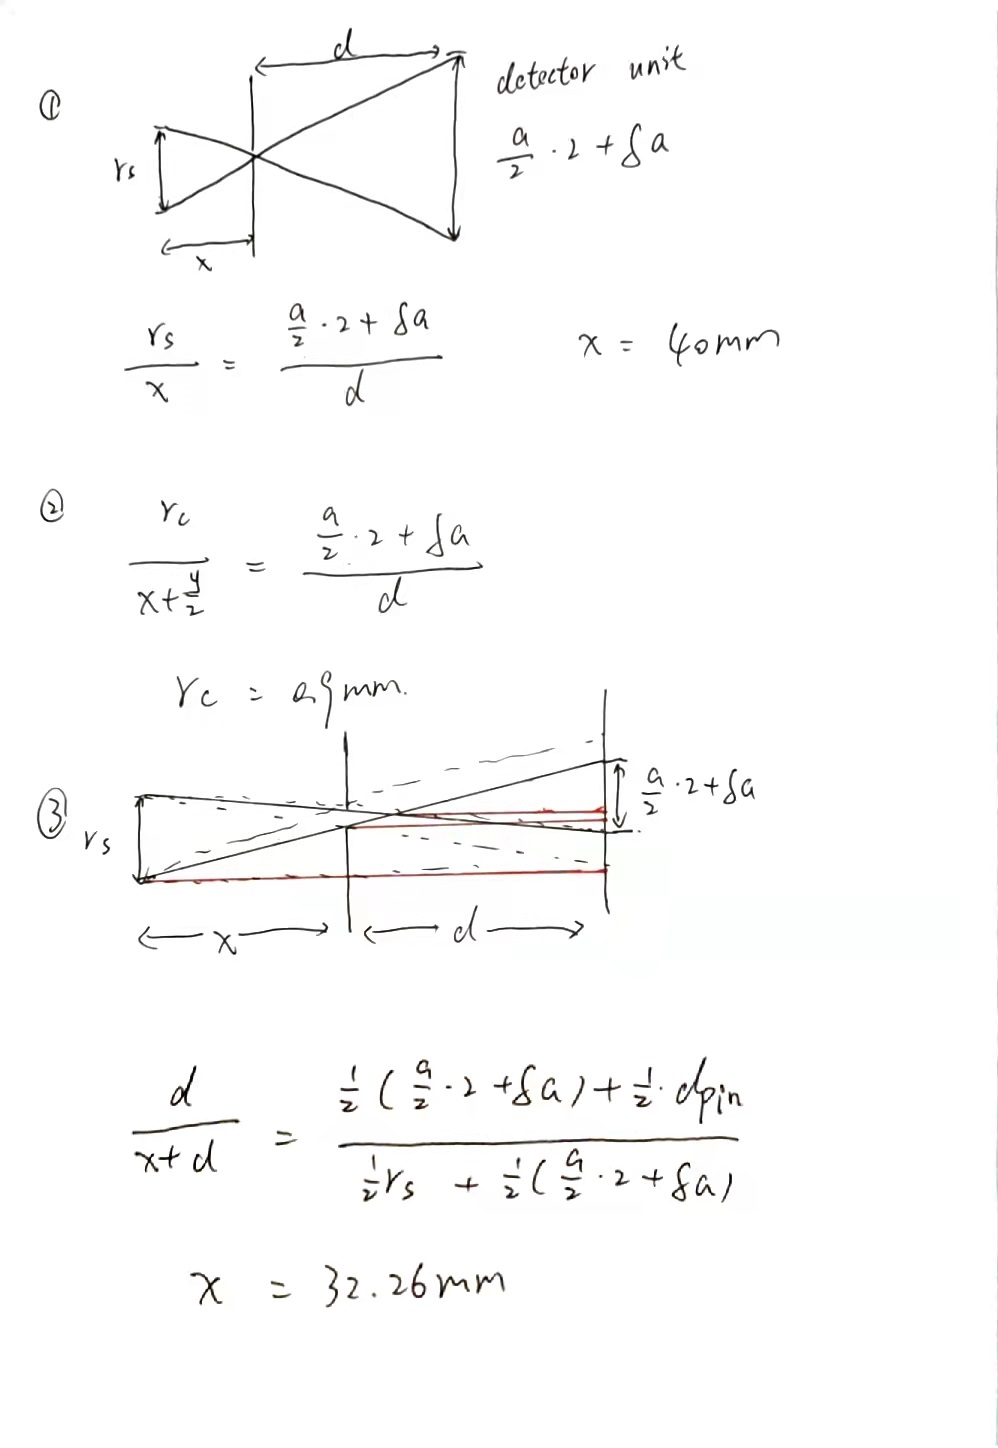 ① d detector unit
a/2 · 2 + δa
rs
x
rs/x = (a/2 · 2 + δa)/d x = 40mm
② rc/(x+y/2) = (a/2 · 2 + δa)/d
rc = mm.
③ rs a/2 · 2 + δa
x d
d/(x+d) = (1/2 (a/2 · 2 + δa) + 1/2 · dpin)/(1/2 rs + 1/2 (a/2 · 2 + δa))
x = 32.26mm